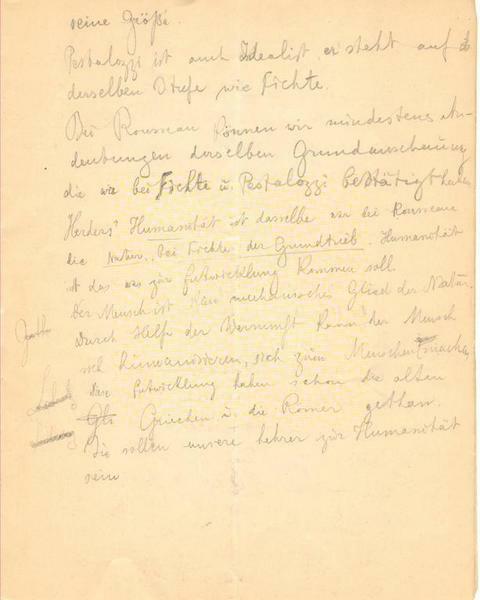 seine Größe.
Pestalozzi ist auch Idealist, er steht auf
derselben Stufe wie Fichte.
Bei Rousseau können wir mindestens An-
deutungen derselben Grundanschauung
die wir bei Fichte u. Pestalozzi bestätigt haben
Herders' Humanität ist dasselbe was bei Rousseau
die Natur, bei Fichte der Grundtrieb. Humanität
ist das was zur Entwicklung kommen soll.
Der Mensch ist kein mechanisches Glied der Natur.
Durch Hilfe der Vernunft kann der Mensch
sich humanisieren, sich zum Menschen machen
Diese Entwicklung haben schon die alten
Griechen u. die Römer gethan.
Sie sollen unsere Lehrer zur Humanität
sein